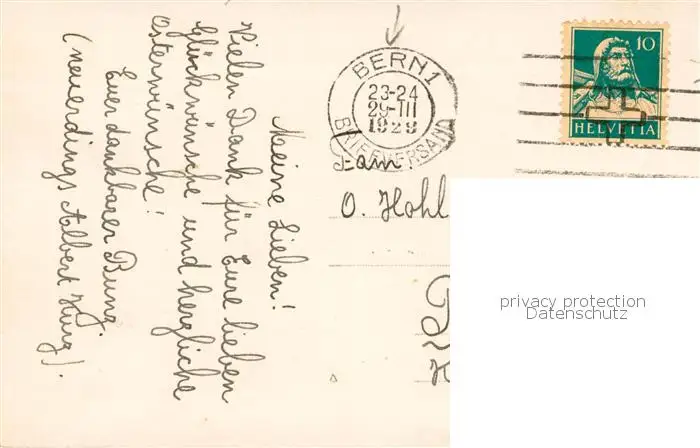 Meine Lieben!
Vielen Dank für Eure lieben
Glückwünsche und herzliche
Osterwünsche!
Euer dankbarer Bung.
(neuerdings Albert Kurz).
BERN 1
23-24
29-III
1929
BRIEFVERSAND
10
HELVETIA
Fam.
O. Hohl
privacy protection
Datenschutz